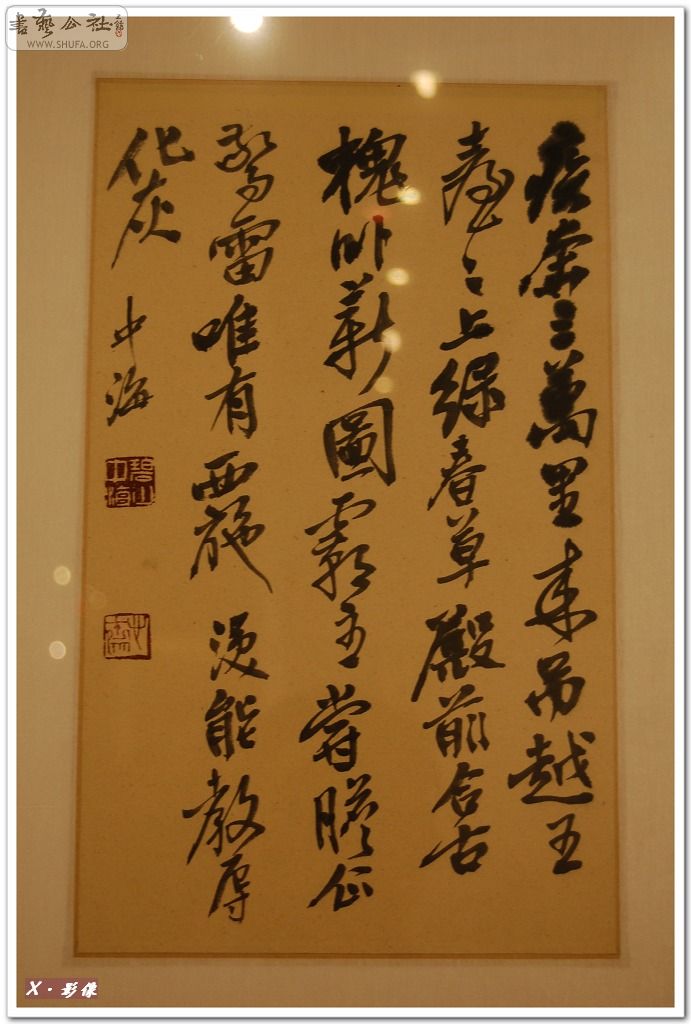 書藝公社
WWW.SHUFA.ORG
三萬里來弔越王
臺〻上綠春草殿前含古
槐卧薪圖霸主嘗膽企
驚雷唯有西施能教辱
化灰 中海
X·影像